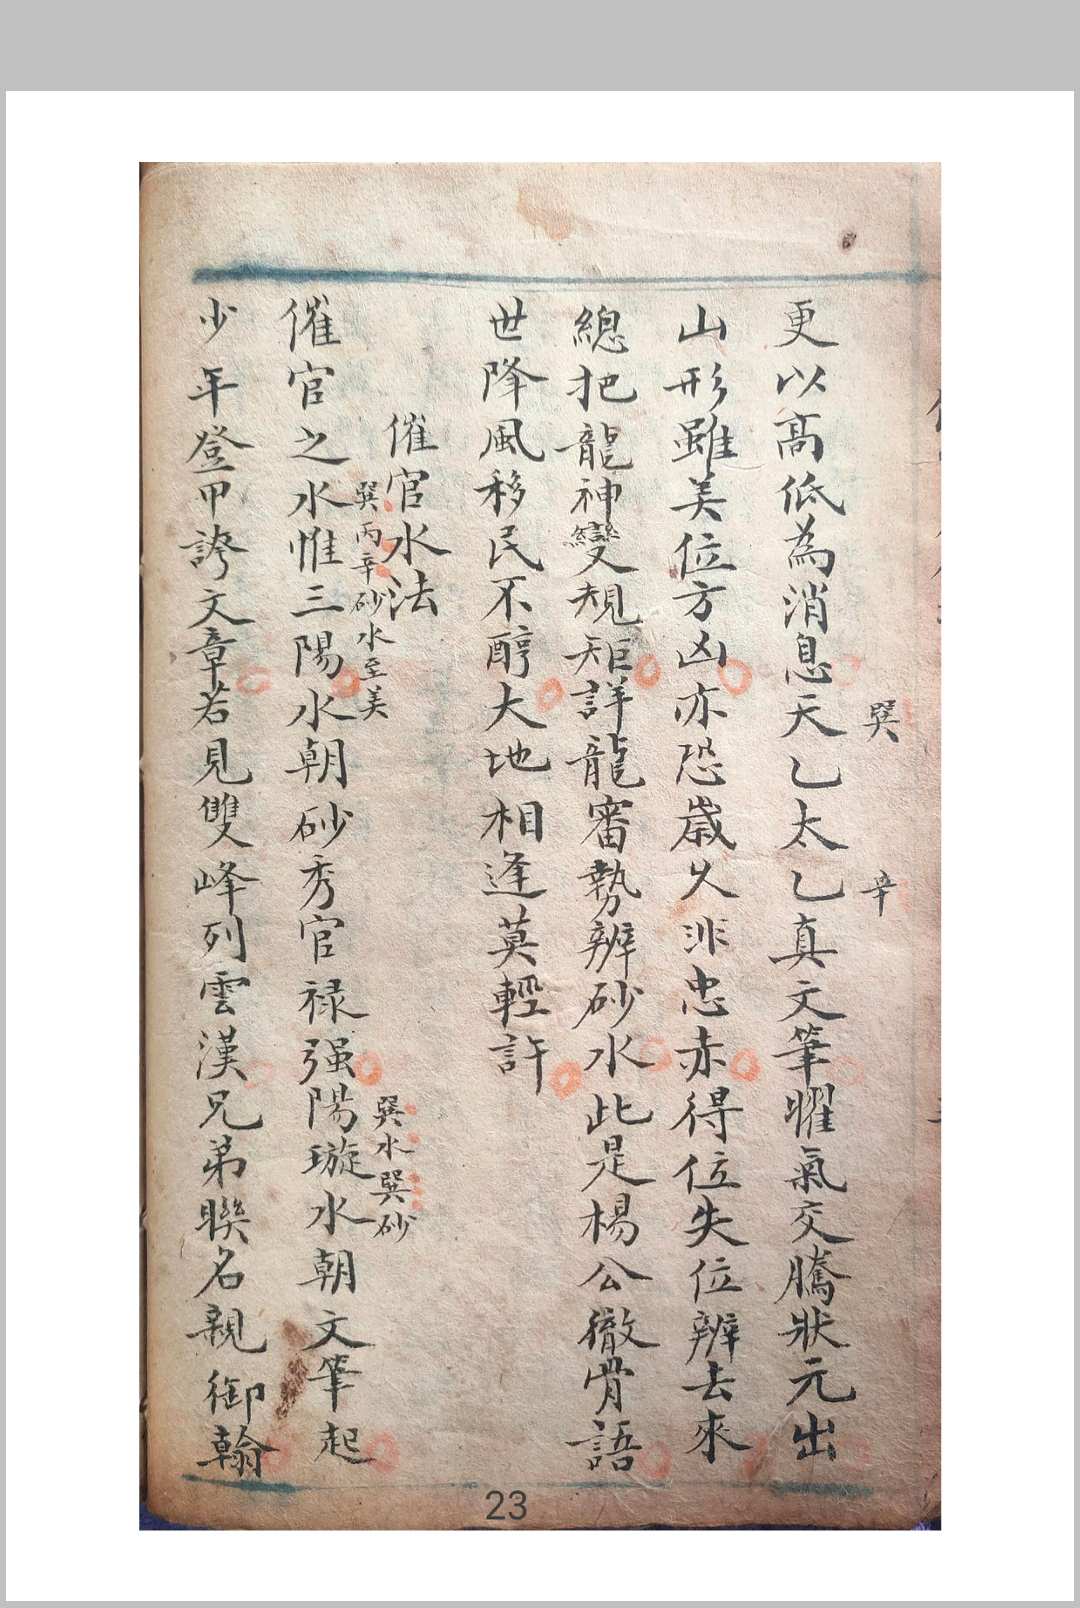 巽
辛
更以高低為消息天乙太乙真文筆曜氣交騰狀元出
山形雖美位方凶亦恐歲久非忠赤得位失位辨去來
總把龍神變規矩詳龍審勢辨砂水此是楊公徹骨語
世降風移民不醇大地相逢莫輕許
催官水法
巽丙辛砂水至美
巽水巽砂
催官之水惟三陽水朝砂秀官禄强陽璇水朝文筆起
少年登甲誇文章若見雙峰列雲漢兄弟聯名親御翰
23